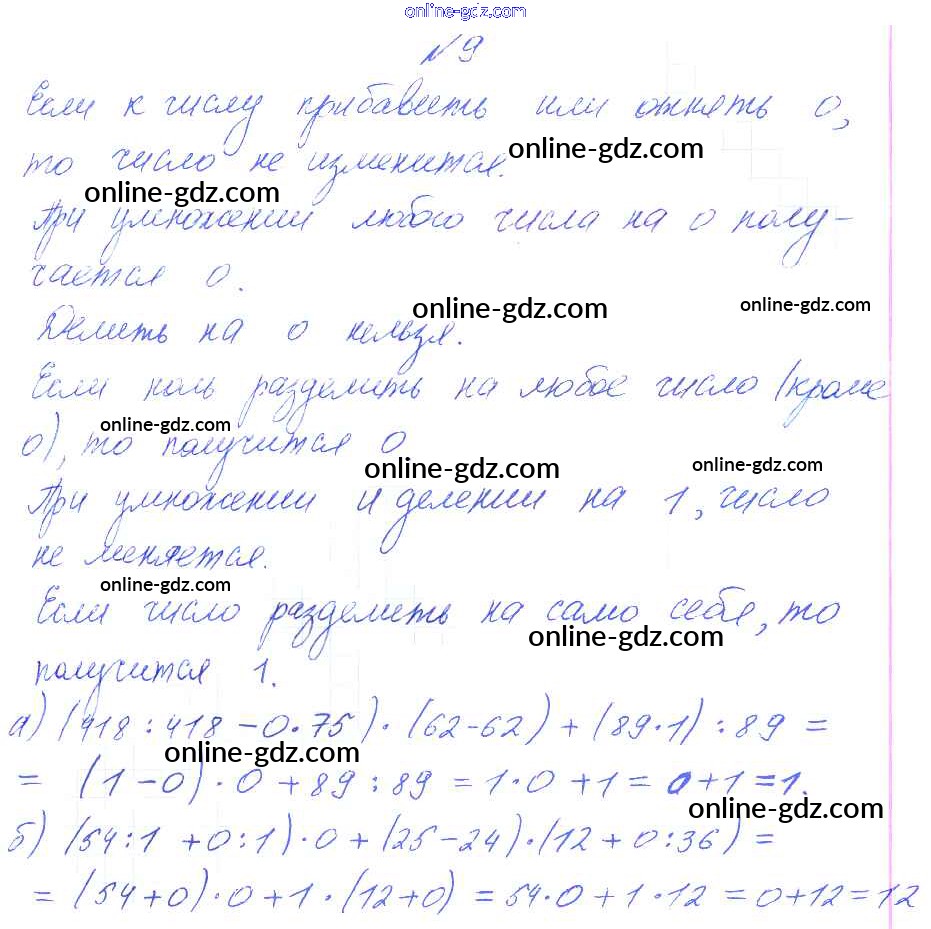 online-gdz.com
№9
Если к числу прибавить или отнять 0,
то число не изменится.
online-gdz.com
online-gdz.com
При умножении любого числа на 0 полу-
чается 0.
online-gdz.com
online-gdz.com
Делить на 0 нельзя.
Если ноль разделить на любое число (кроме
online-gdz.com
0), то получится 0
online-gdz.com
online-gdz.com
При умножении и делении на 1, число
не меняется.
online-gdz.com
Если число разделить на само себя, то
online-gdz.com
получится 1.
а) (418 : 418 - 0·75) · (62-62) + (89·1) : 89 =
online-gdz.com
= (1-0) · 0 + 89 : 89 = 1·0 + 1 = 0+1=1.
online-gdz.com
б) (54:1 + 0:1) · 0 + (25-24) · (12 + 0:36) =
= (54+0) · 0 + 1 · (12+0) = 54·0 + 1·12 = 0+12=12